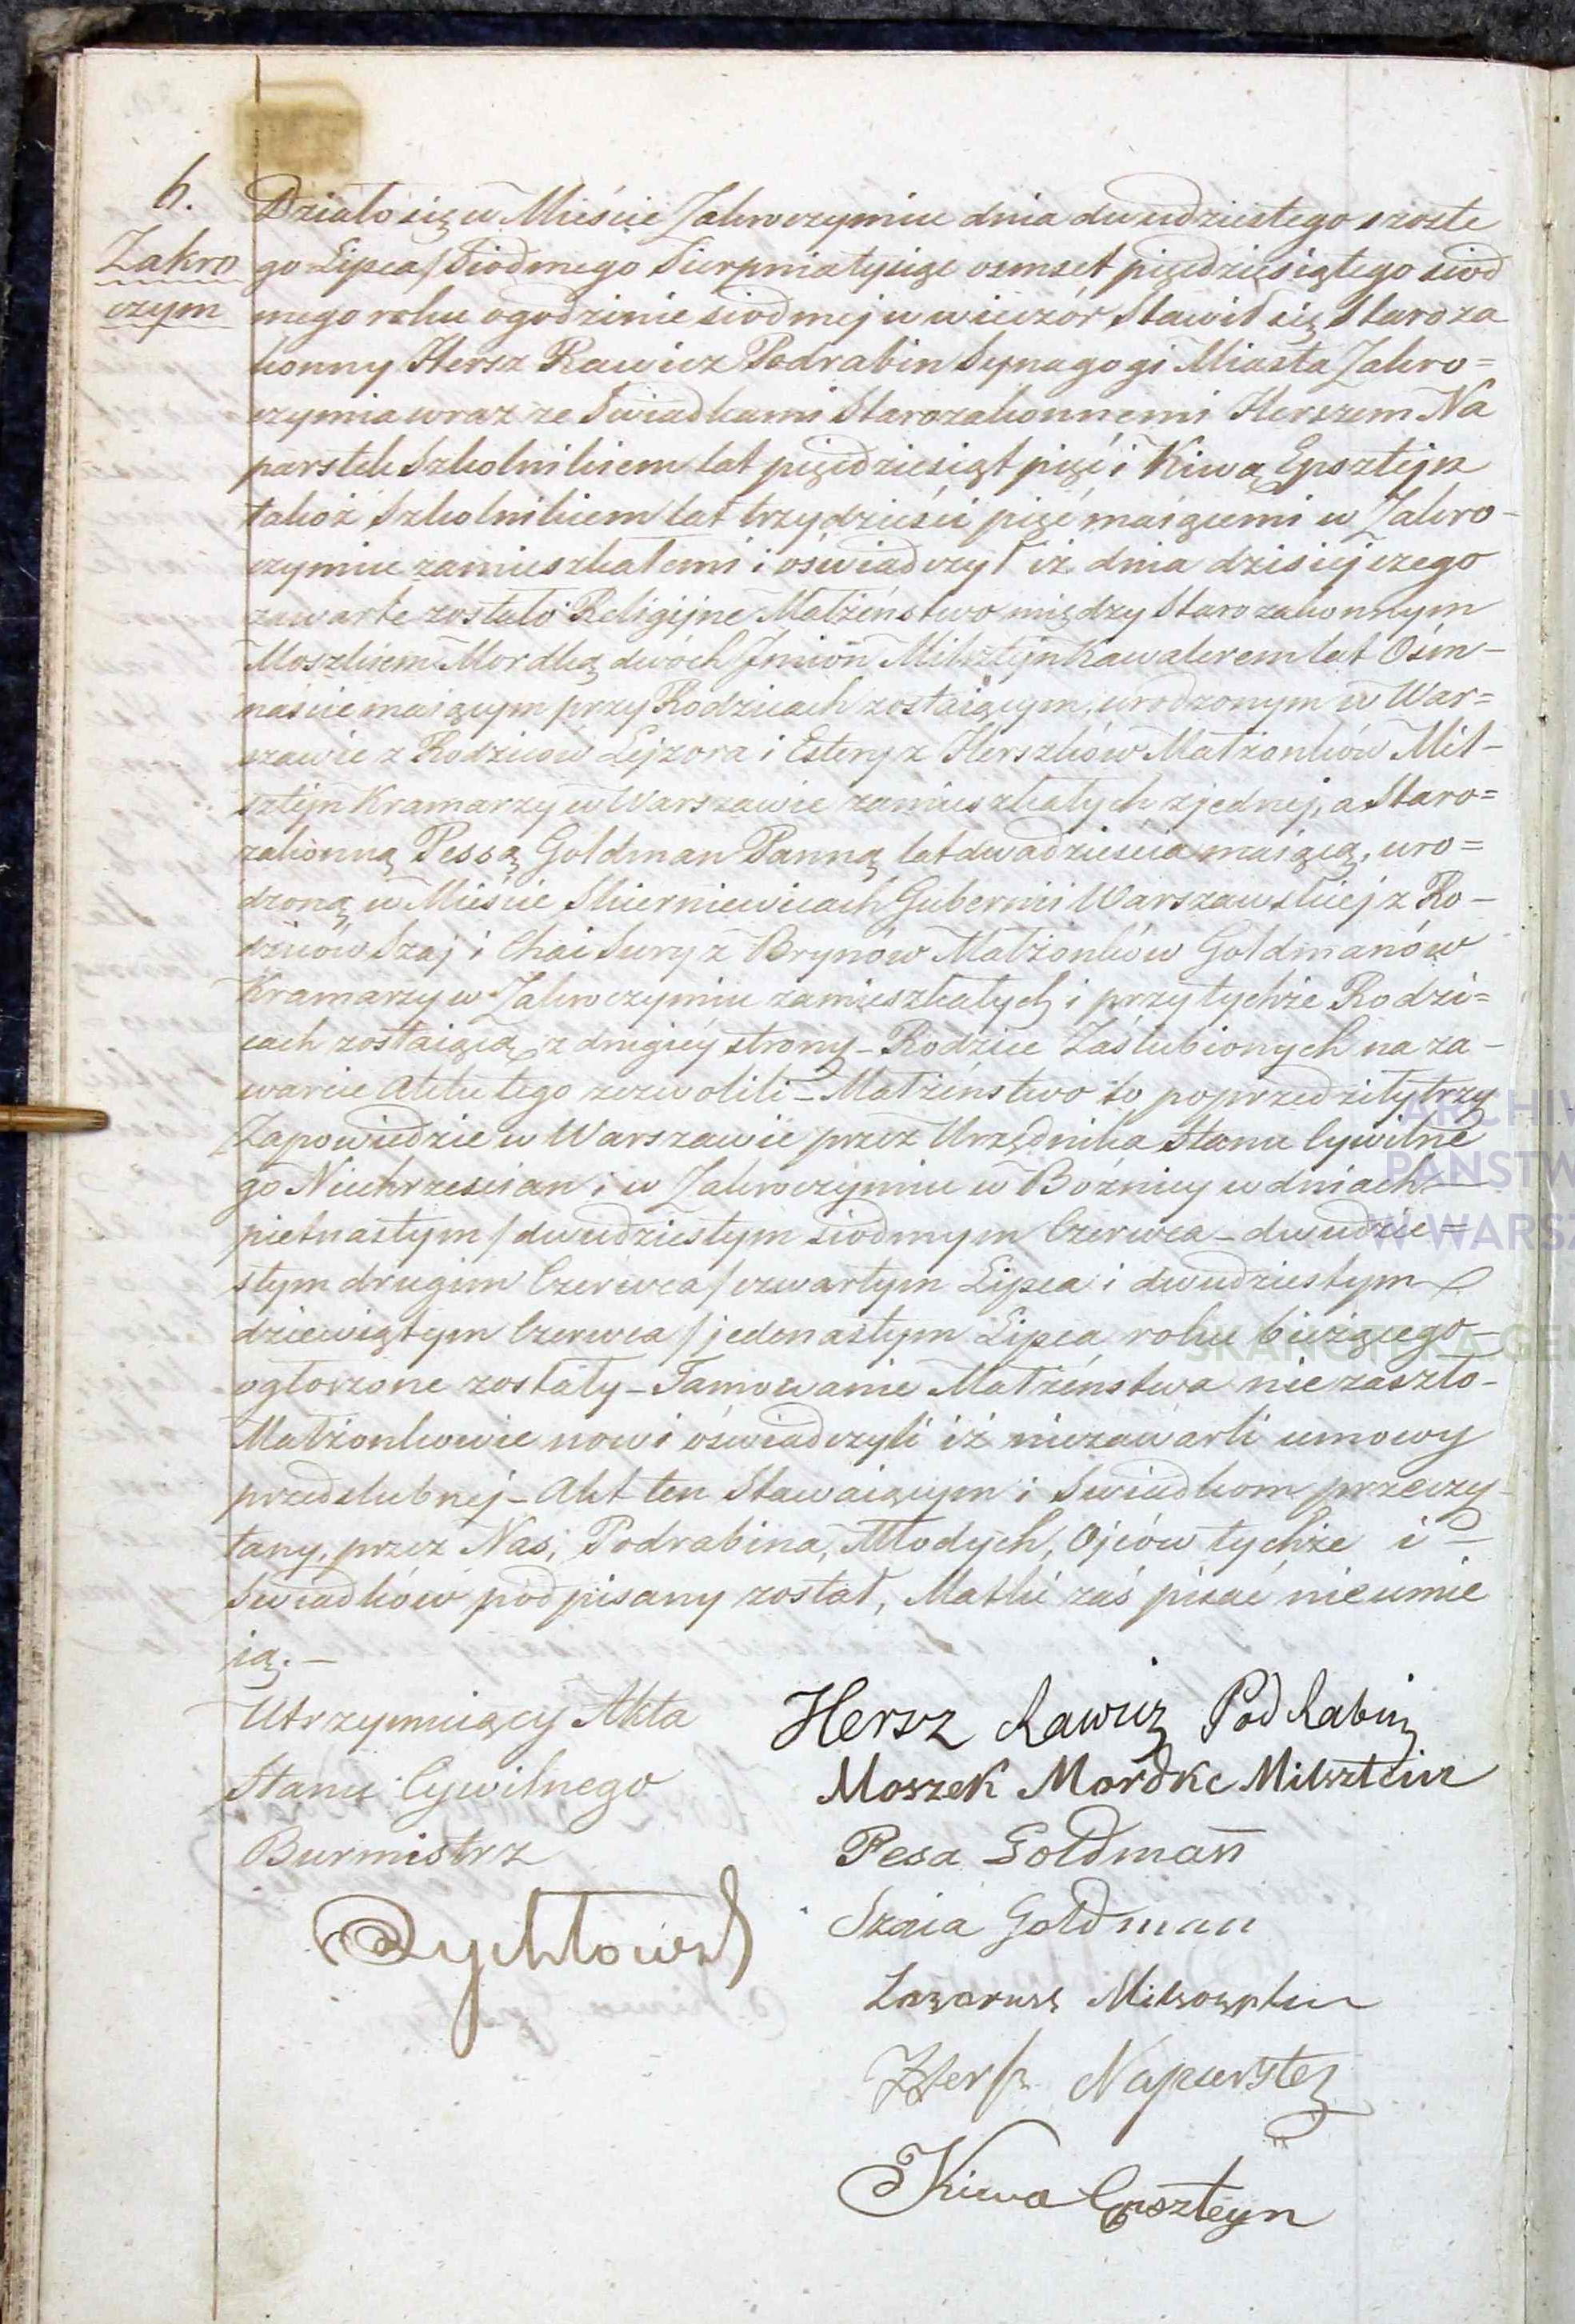 6.
Zakro
czym
Działo się w Mieście Zakroczymiu dnia dwudziestego szoste
go Lipca / Siodmego Sierpnia tysiąc osmset pięcdziesiątego siod
mego roku o godzinie siodmej w wieczór Stawił się Staroza
konny Hersz Rawicz Podrabin Synagogi Miasta Zakro=
czymia wraz ze Swiadkami Starozakonnemi Herszem Na
parstek Szkolnikiem lat pięcdziesiąt pięć i Kiwą Epsztejn
takoż Szkolnikiem lat trzydzieści pięć maiącemi w Zakro-
czymiu zamieszkałemi i oświadczył iż dnia dzisiejczego
zawarte zostało Religijne Małżeństwo między Starozakonnym
Moszkiem Mordką dwóch Imion Milsztejn Kawalerem lat Ośm-
naście maiącym przy Rodzicach zostaiącym, urodzonym w War=
szawie z Rodziców Lejzora i Estery z Herszków Małżonków Mil-
sztejn Kramarzy w Warszawie zamieszkałych z jednej, a Staro=
zakonną Pessą Goldman Panną lat dwadzieścia maiącą, uro=
dzoną w Mieście Skierniewicach Gubernii Warszawskiej z Ro-
dziców Szaj i Chai Sury z Brynów Małżonków Goldmanów
Kramarzy w Zakroczymiu zamieszkałych i przy tychże Rodzi=
cach zostaiącą z drugiéj strony - Rodzice Zaślubionych na za-
warcie Aktu tego zezwolili - Małżeństwo to poprzedziły trzy
Zapowiedzie w Warszawie przez Urzędnika Stanu Cywilne
go Niechrzescian i w Zakroczymiu w Bóźnicy w dniach -
pietnastym / dwudziestym siodmym Czerwca - dwudzie=
stym drugim Czerwca / czwartym Lipca i dwudziestym
dziewiątym Czerwca / jedenastym Lipca roku bieżącego -
ogłorzone zostały - Tamowanie Małżeństwa nie zaszło -
Małżonkowie nowi oświadczyli iż niezawarli umowy
przedslubnej - Akt ten Stawaiącym i Swiadkom przeczy-
tany, przez Nas, Podrabina, Młodych, Ojców tychże i -
Swiadków podpisany został, Matki zaś pisać nieumie
ią. -
Utrzymuiący Akta
Stanu Cywilnego
Burmistrz
Rychłowsk
Hersz Rawicz Pod Rabin
Moszek Mordke Milsztein
Pesa Goldmann
Szaia Goldman
Lazarus
Hersz Naparstek
Kiwa Epszteyn
ARCHIW
PAŃSTW
W WARSZ
SKANOTEKA.GEN